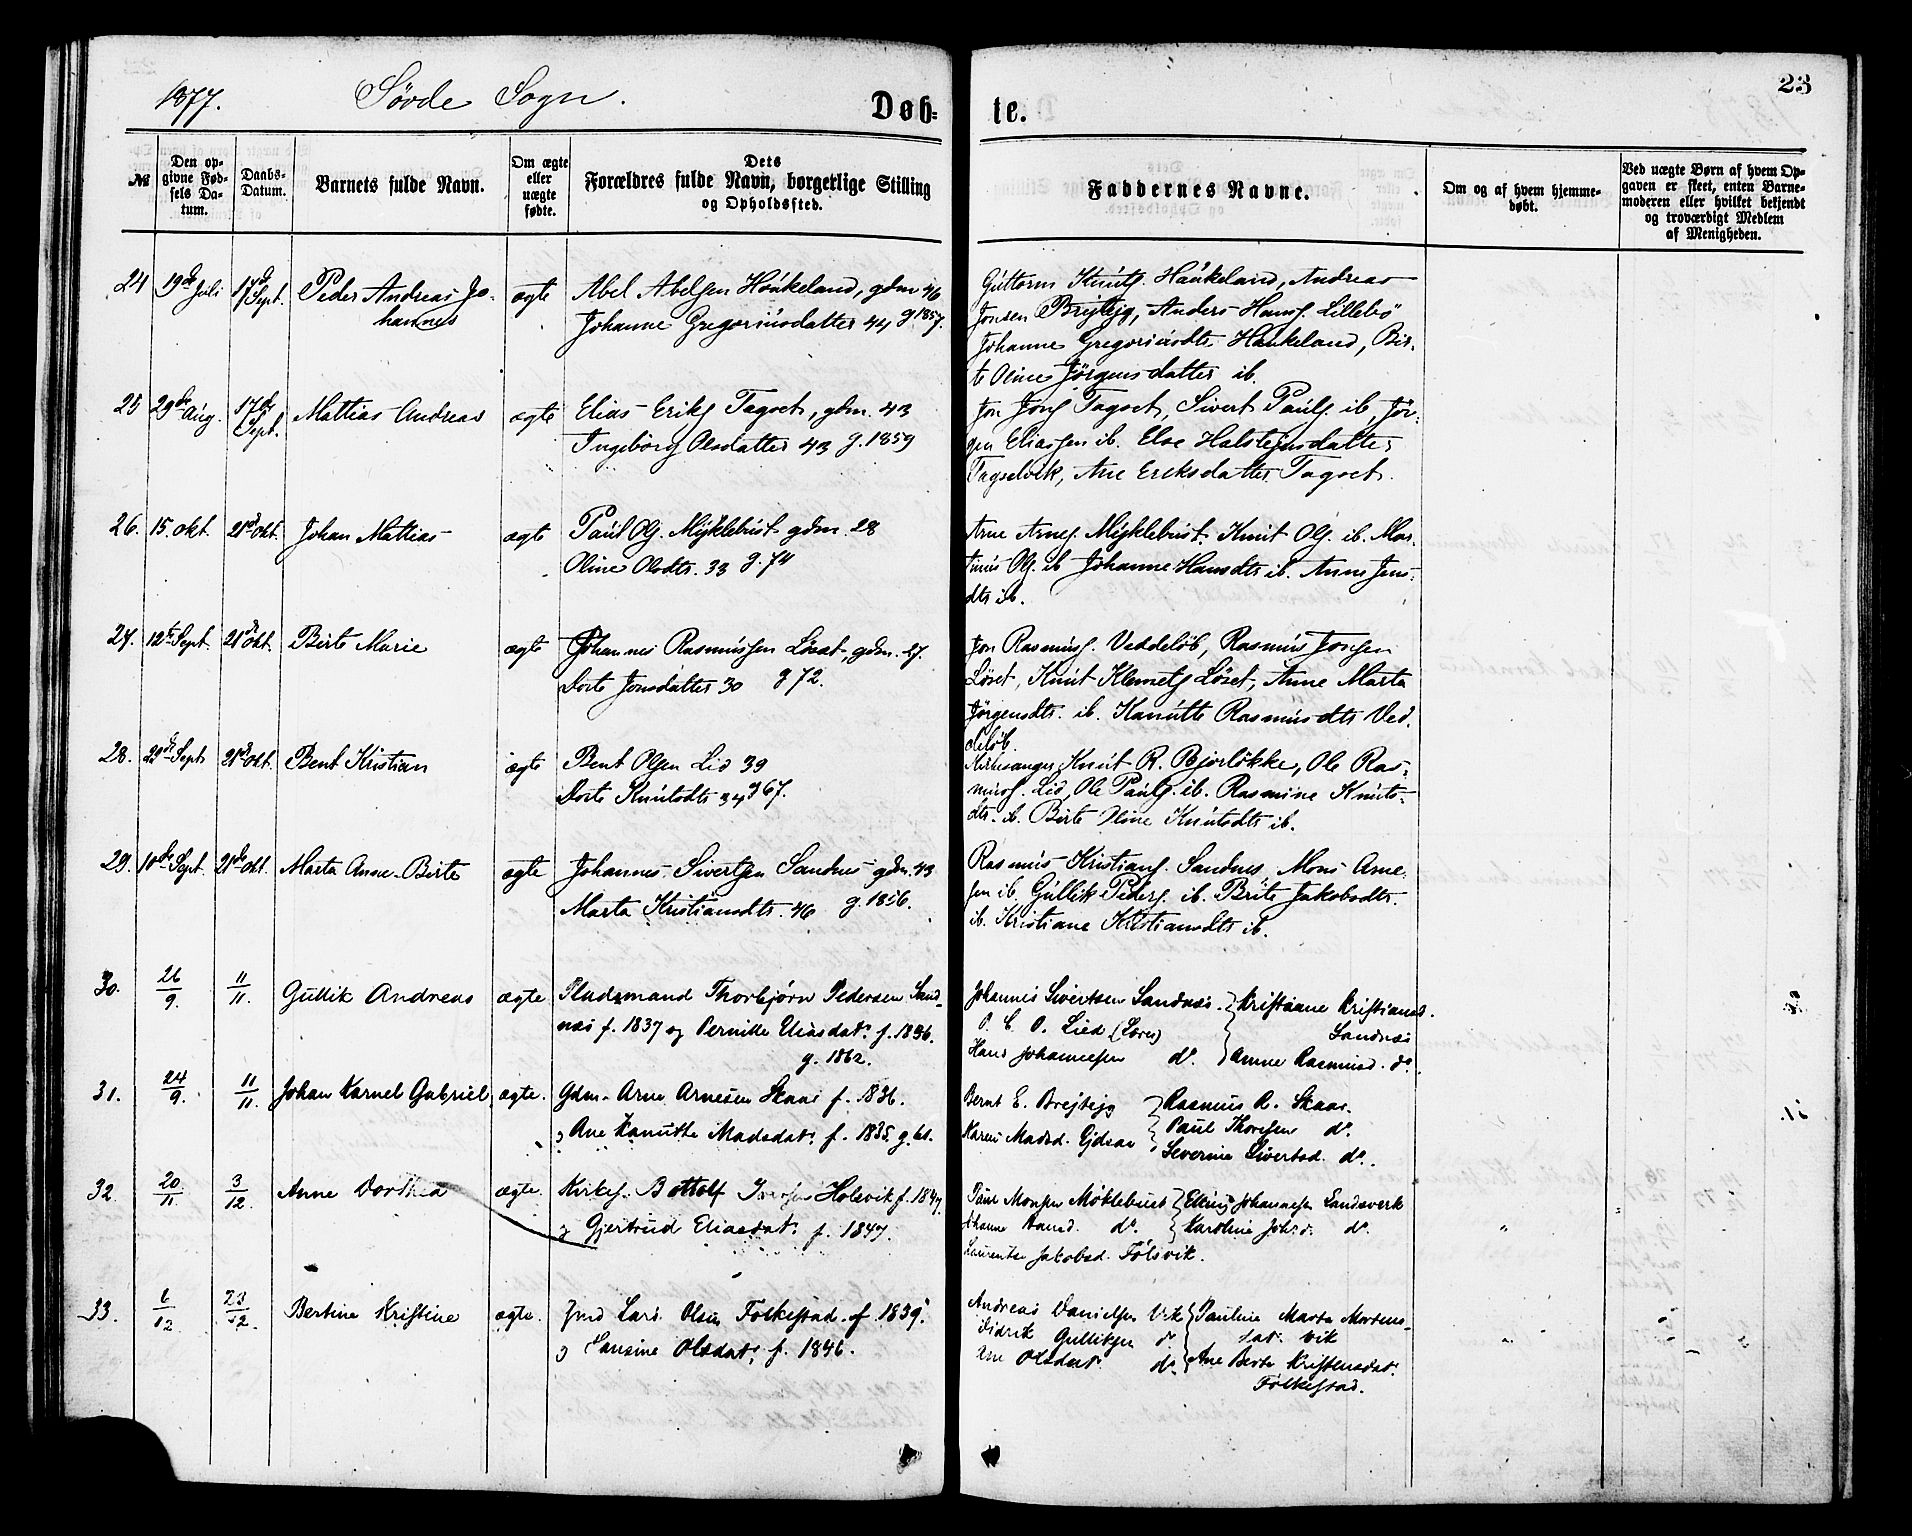 1877. Sövde Sogn. Døb- te. 23
№
Den opgivne Fødsels Datum.
Daabs-Datum.
Barnets fulde Navn.
Om ægte eller uægte fødte.
Dets Forældres fulde Navn, borgerlige Stilling og Opholdssted.
Faddernes Navne.
Om og af hvem hjemmedøbt.
Ved uægte Børn af hvem Opgaven er skeet, enten Barnemoderen eller hvilket bekjendt og troværdigt Medlem af Menigheden.
24 19de Juli 17de Sept. Peder Andreas Jo-
hannes
ægte
Abel Abelsen Haukeland, gdm 46
Johanne Gregoriusdatter 44 g 1857.
Guttorm Knuts. Haukeland, Andreas
Jonsen Brejtejg, Anders Hans. Lillebö
Johanne Gregoriusdtr Haukeland, Bir-
te Oline Jörgensdatter ib.
25 29de Aug. 17de Sept. Mattias Andreas
ægte
Elias Eriks Tagset, gdm. 43
Ingeborg Olsdatter 43 g. 1859
Jon Jons Tagset, Sivert Pauls ib, Jör-
gen Eliassen ib. Else Halstejnsdatter
Tagselvik, Ane Eriksdatter Tagset.
26. 15. Okt. 21de Okt. Johan Mattias
ægte
Paul Ols. Myklebust gdm. 28
Oline Olsdtr. 33 g. 74
Arne Arnes. Myklebust. Knut Ols. ib. Mar-
tinus Ols. ib Johanne Hansdtr ib. Anne Jens-
dtr ib.
27. 12te Sept. 21de Okt. Birte Marie
ægte
Johannes Rasmussen Löset, gdm. 27.
Dorte Jonsdatter 30 g 72.
Jon Rasmus. Veddelöb, Rasmus Jonsen
Löset, Knut Klemets Löset, Anne Marta
Jörgensdtr. ib. Kanutte Rasmusdtr Ved-
delöb.
28. 22de Sept 21de Okt. Bent Kristian
ægte
Bent Olsen Lid 39
Dorte Knutsdtr 34 g 67.
Kirkesanger Knut R. Bjorlökke, Ole Ras-
muss. Lid, Ole Pauls. ib. Rasmine Knuts-
dtr. ib. Birte Oline Knutsdtr ib.
29. 10de Sept. 21de Okt. Marta Anne-Birte
ægte
Johannes Sivertsen Sandnes gdm. 43
Marta Kristiansdtr. 46 g. 1856.
Rasmus Kristians. Sandnes, Mons Arne-
sen ib. Gullik Peders. ib. Brite Jakobsdtr.
ib. Kristiane Kristiansdtr ib.
30. 26/9. 11/11. Gullik Andreas
ægte
Pladsmand Thorbjørn Pedersen Sand-
næs f. 1837 og Pernille Eliasdat. f. 1836.
g. 1862.
Johannes Sivertsen Sandnæs. Kristiane Kristiansd.
P. C. O. Lied Sandnæs
Hans Johannessen do. Anne Rasmusd. do.
31. 24/9. 11/11. Johan Karnel Gabriel
ægte.
Gdm. Arne Arnesen Skaar f. 1836.
og Ane Kanutte Madsdat. f. 1835. g. 61.
Bernt E. Brejtejg Rasmus R. Skaar.
Karen Madsd. Paul Thorsen do.
Severine Sivertsd. do.
32. 20/11. 3/12. Anne Dorthea
ægte.
Kirkes. Bottolf Iversen Holsvik f. 1847.
og Gjertrud Eliasdat. f. 1847.
Paul Monsen Möklebust Johannesen Landsverk
Hansd. do. Karoline Joh.d. do.
Laurentse Jakobsd. Fölsvik.
33. 6/12 23/12. Bertine Kristine
ægte.
Lars Olsen Folkestad f. 1839.
og Olsdat. f. 1846.
Andreas Danielsen Vik Pauline Marta Mortens-
Didrik Gulliksen do. dat. Vik
Olsdat. do. Ane Berte Kristensdat.
Folkestad.